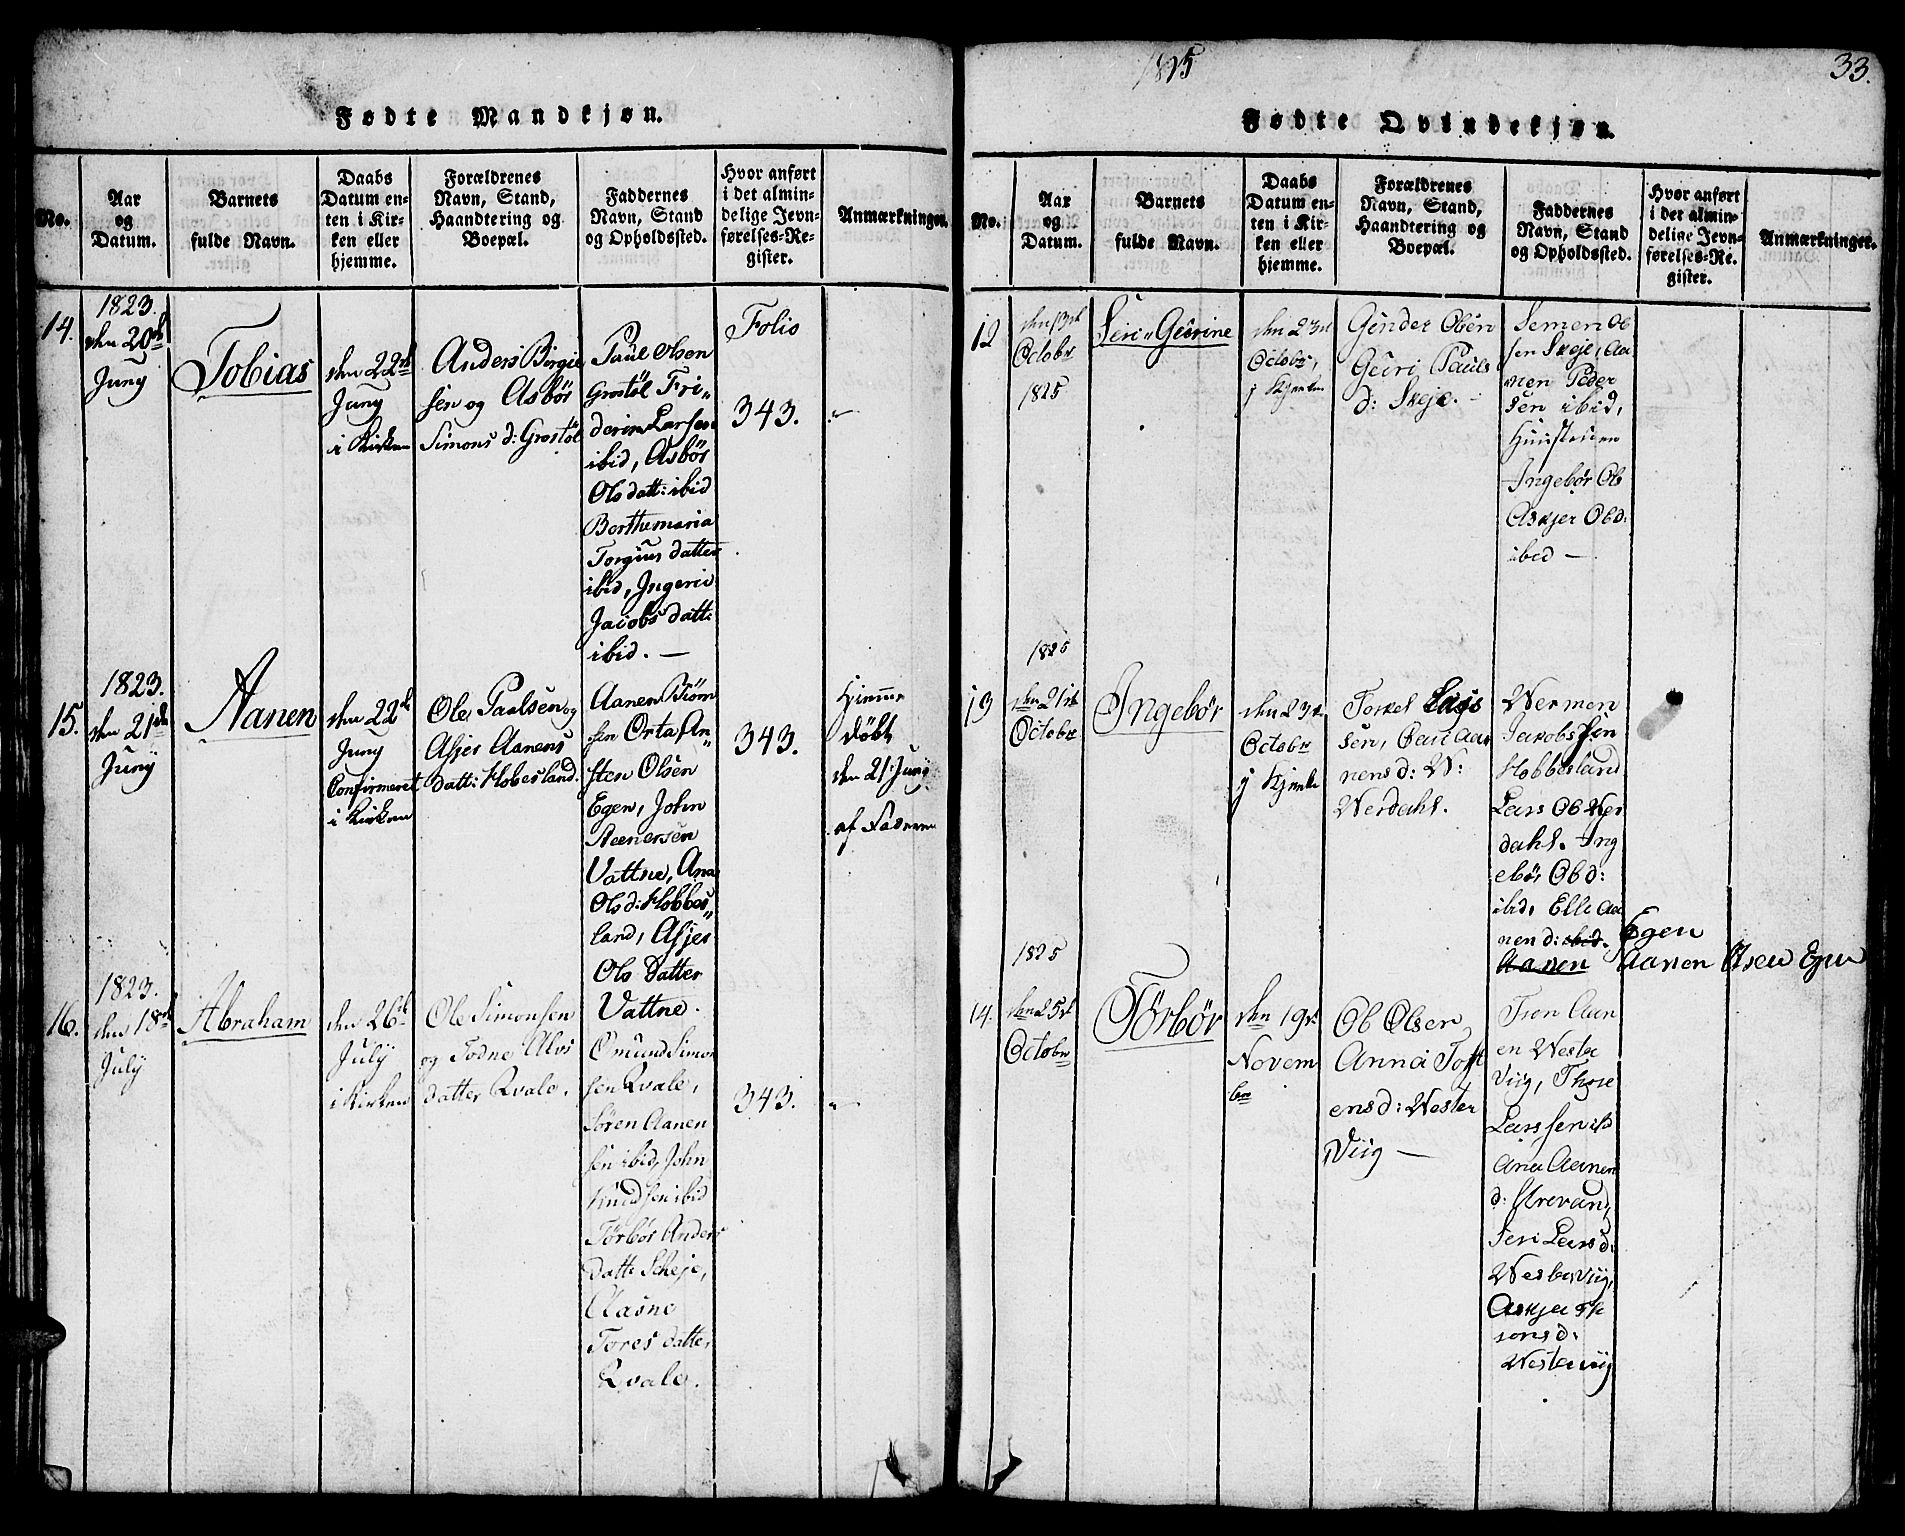 1825
33.
Fødte Mandkjøn.
No.
Aar
og
Datum.
Barnets
fulde Navn.
Daabs
Datum en-
ten i Kir-
ken eller
hjemme.
Forældrenes
Navn, Stand,
Haandtering og
Boepæl.
Faddernes
Navn, Stand
og Opholdssted.
Hvor anført
i det almin-
delige Jevn-
førelses-Re-
gister.
Anmærkninger.
14.
1823.
den 20de
Juny
Tobias
den 22de
Juny
i Kirken
Anders Birgie
sen og Asbør
Simons d: Grostøl
Paul Olsen
Grostøl Fri„
derin Larsen
ibid, Asbør
Ols datt: ibid
Berthemaria
Torgius datter
ibid, Ingerid
Jacobs datt:
ibid. —
Folio
343.
„
15.
1823.
den 21de
Juny
Aanen
den 22de
Juny
Confirmeret
i Kirken
Ole Paalsen og
Asjer Aanens
datt: Hobesland.
Aanen Biørn
sen Orta, An„
sten Olsen
Egen, John
Steenersen
Vattne, Ana
Olsd: Hobbes„
land, Asjer
Ols Datter
Vattne.
343.
Hjemme
døbt
den 21 Juny
af Faderen
16.
1823.
den 18de
July
Abraham
den 26de
July
i Kirken
Ole Simonsen
og Todne Alvs
datter Qvale.
Omund Simon
sen Qvale,
Søren Aanen
sen ibid, John
Knudsen ibid
Tørbør Anders
datt: Scheje,
Aasne
Tores datter
Qvale.
343.
„
Fødte Qvindekjøn.
No.
Aar
og
Datum.
Barnets
fulde Navn.
Daabs
Datum en-
ten i Kir-
ken eller
hjemme.
Forældrenes
Navn, Stand,
Haandtering og
Boepæl.
Faddernes
Navn, Stand
og Opholdssted.
Hvor anført
i det almin-
delige Jevn-
førelses-Re-
gister.
Anmærkninger.
12
den 13de
Octobr
1825
Seri Gurine
den 23de
Octobr,
j Kjerken
Gunder Olsen
Guri Pauls
d: Skeje. —
Semen Ol
sen Skeje, Aa
nen Peder
sen ibid,
Ingebør Ols
Askjer Olsd:
ibid —
1825
13
den 21de
Octobr
Ingebør
den 23de
Octobr
j Kjerke
Torkel Lars
sen, Aa
nensd: W:
Werdahl.
Wermon
Jakobssen
Hobbesland
Lars Ols Wer
dahl. Ing
ebør Olsd:
ibid, Elli Aa
nen d: ibid. Egen
Aanen Aanen Osen Egen
1825
14.
den 25de
Octobr
Tørbør
den 19de
Novem
ber
Ole Olsen
Anna Tost
ensd: Wester
Viig —
Tron Aan
en Wester
Viig, Thore
Larssen ibd
Ana Aanen
d: Urevand,
Seri Larsd:
Westerviig,
Askjer
sonsd:
Westerviig